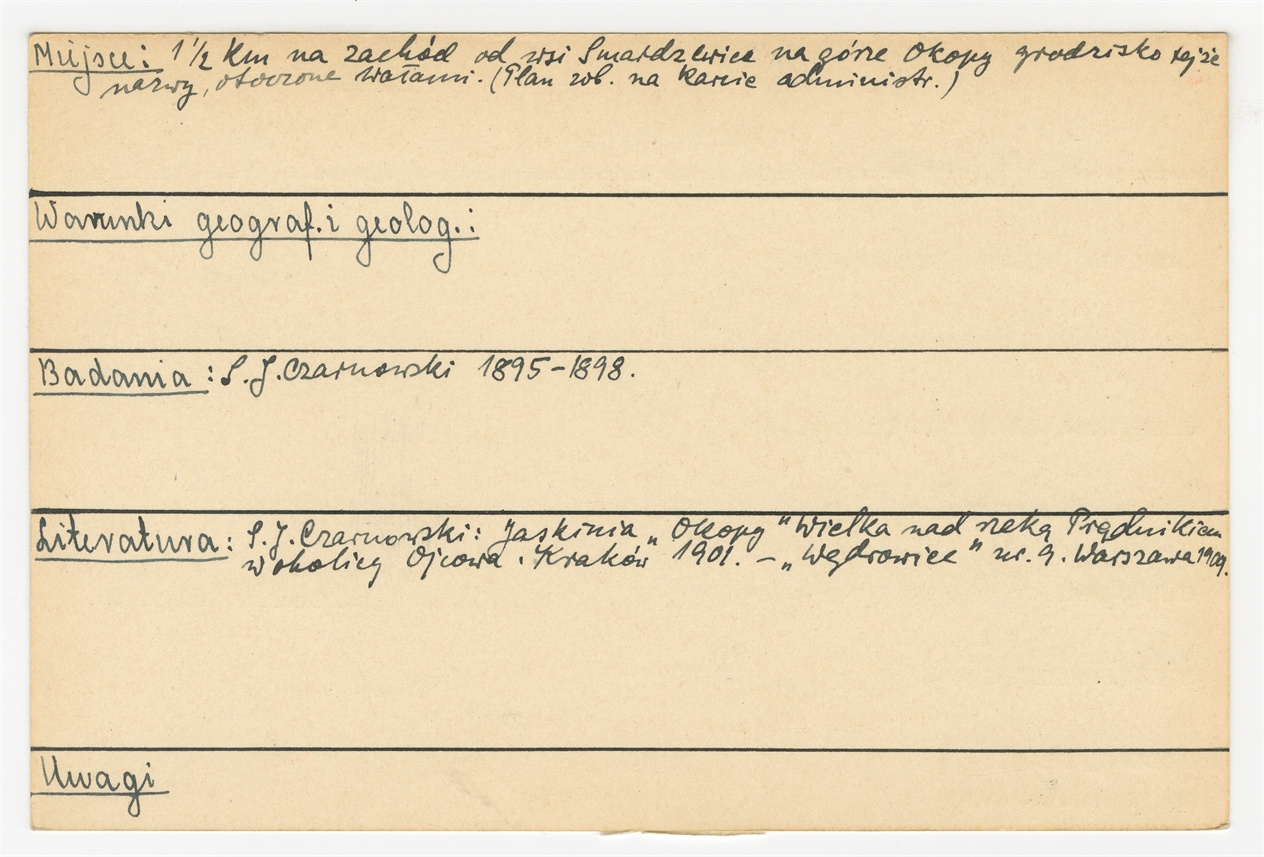 Miejsce: 1 1/2 Km na zachód od wsi Smardzewice na górze Okopy grodzisko tejże
nazwy, otoczone wałami. (Plan zob. na karcie administr.)
Warunki geograf. i geolog.:
Badania: S. J. Czarnowski 1895-1898.
Literatura: S. J. Czarnowski: Jaskinia „Okopy" Wielka nad rzeką Prądnikiem
w okolicy Ojcowa. Kraków 1901. - „Wędrowiec" nr. 9. Warszawa
Uwagi